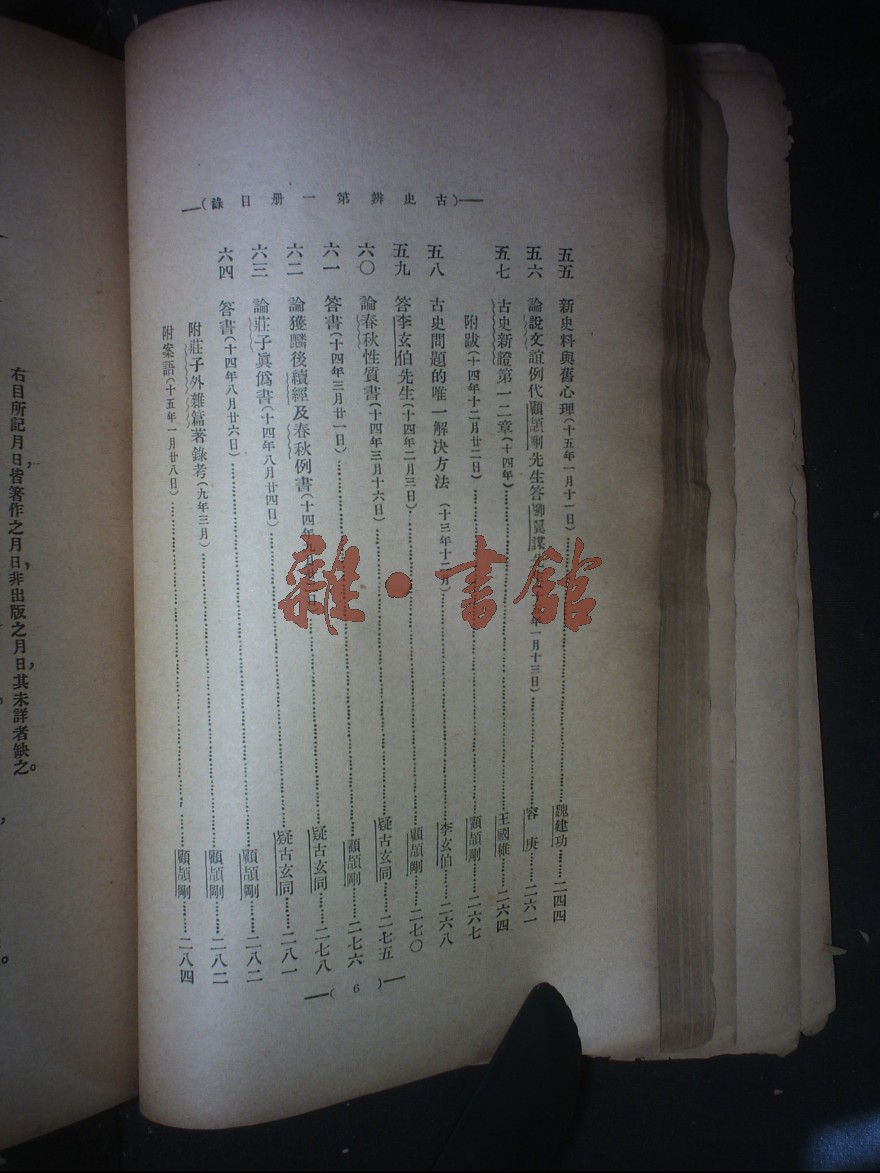 (古史辨第一册目錄)
五五 新史料與舊心理(十五年一月十一日)……魏建功……二四四
五六 論說文誼例代顧頡剛先生答柳翼謀先 年一月十三日)……容庚……二六一
五七 古史新證第一二章(十四年)……王國維……二六四
附跋(十四年十二月廿二日)……顧頡剛……二六七
五八 古史問題的唯一解決方法(十三年十二月)……李玄伯……二六八
五九 答李玄伯先生(十四年二月三日)……顧頡剛……二七〇
六〇 論春秋性質書(十四年三月十六日)……疑古玄同……二七五
六一 答書(十四年三月廿一日)……顧頡剛……二七六
六二 論獲麟後續經及春秋例書(十四年 日)……疑古玄同……二七八
六三 論莊子眞僞書(十四年八月廿四日)……疑古玄同……二八一
六四 答書(十四年八月廿六日)……顧頡剛……二八二
附莊子外雜篇著錄考(九年三月)……顧頡剛……二八二
附案語(十五年一月廿八日)……顧頡剛……二八四
(6)
右目所記月日皆著作之月日,非出版之月日,其未詳者缺之。
雜·書館